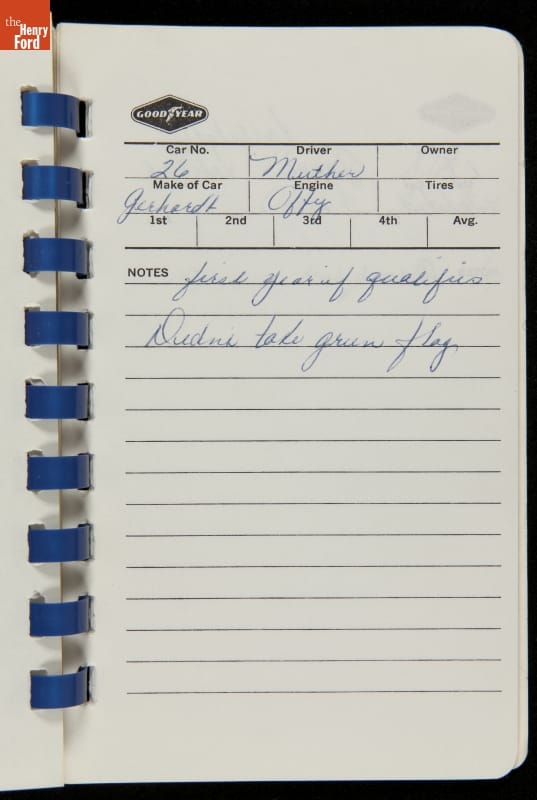 the Henry Ford
GOODYEAR
Car No. Driver Owner
26 Muther
Make of Car Engine Tires
Gerhardt Offy
1st 2nd 3rd 4th Avg.
NOTES first year if qualifies
Didn't take green flag